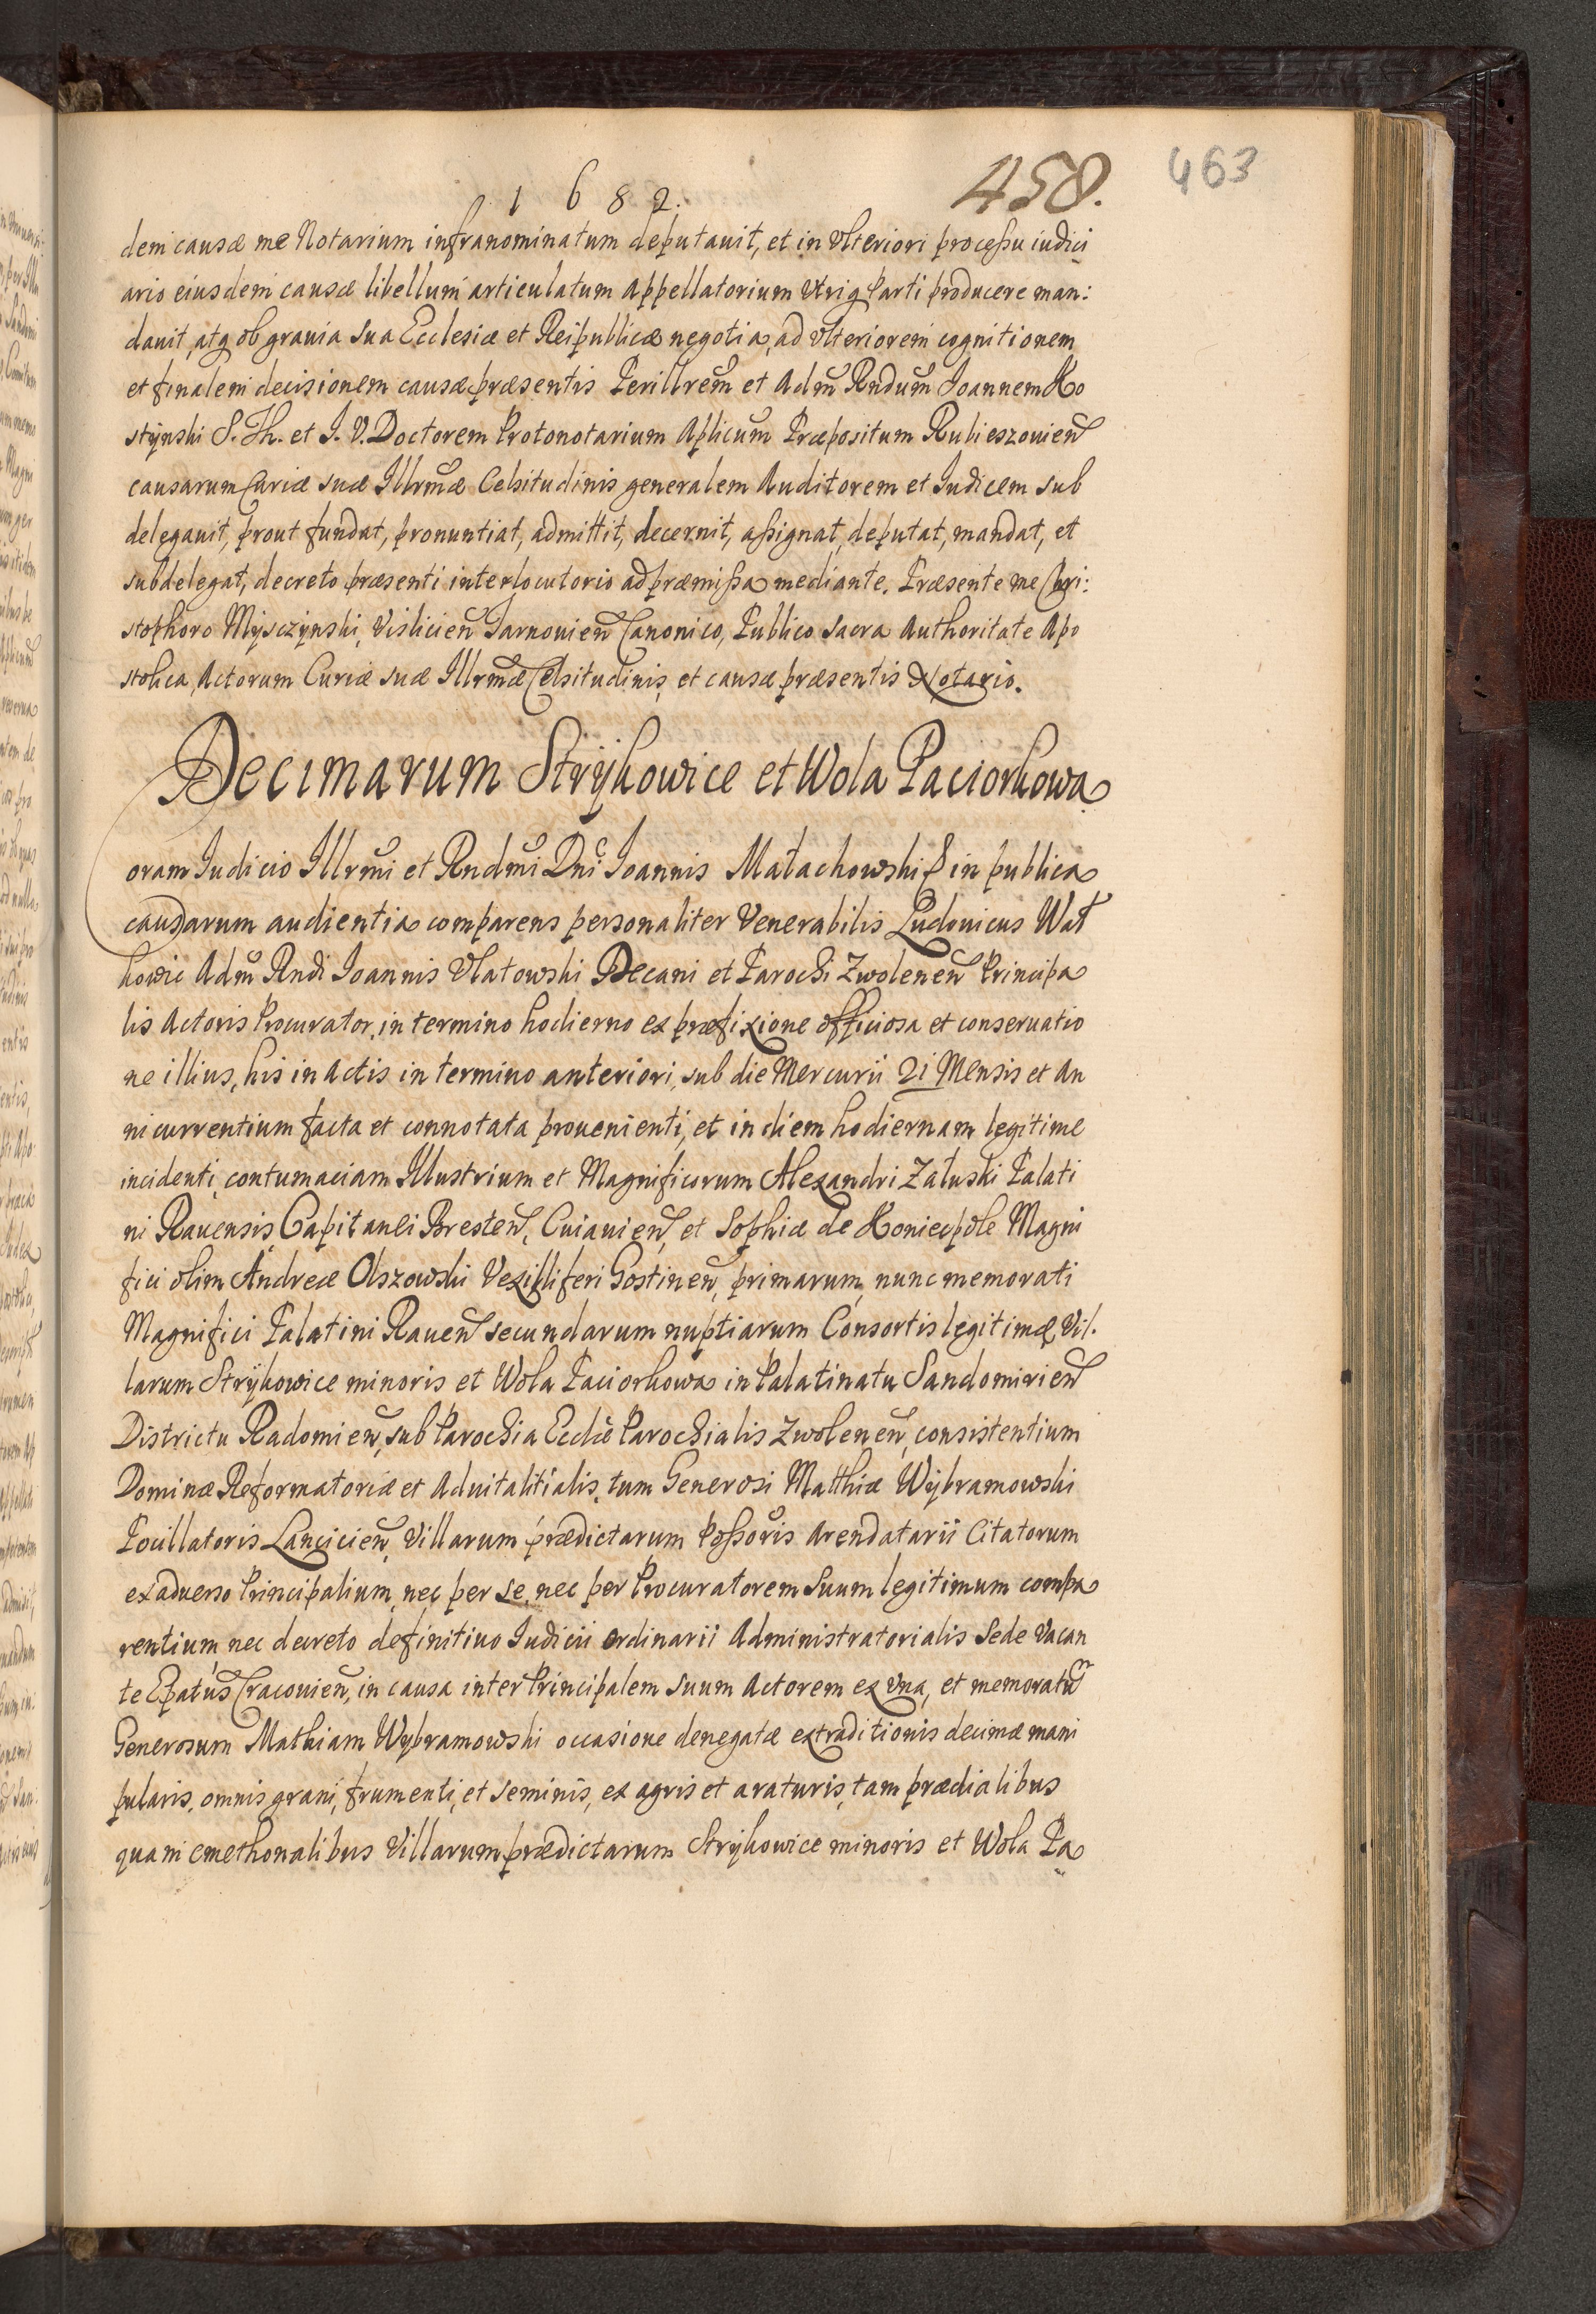 1682.
458.
463
dem causæ me Notarium infranominatum deputauit, et in vlteriori processu iudici
ario eiusdem causæ libellum articulatum Appellatorium vtriq Parti producere man:
dauit, atq ob grauia sua Ecclesiæ et Reipublicæ negotia, ad vlteriorem cognitionem
et finalem decisionem causæ præsentis Perillrem et Adm Rndum Joannem Ko
styński S. Th. et J. V. Doctorem Protonotarium Aplicum Præpositum Rubieszouien
causarum Curiæ suæ Illrmæ Celsitudinis generalem Auditorem et Judicem sub
delegauit, prout fundat, pronuntiat, admittit, decernit, assignat, deputat, mandat, et
subdelegat, decreto præsenti interlocutorio ad præmissa mediante. Præsente me Chri:
stophoro Mysczynski, Vislicien Tarnouien Canonico, Publico Sacra Authoritate Apo
stolica, Actorum Curiæ suæ Illrmæ Celsitudinis, et causæ præsentis Notario.
Decimarum Strÿkowice et Wola Paciorkowa
Coram Judicio Illrmi et Rndmi Dni Joannis Małachowski in publica
causarum audientia comparens personaliter Venerabilis Ludouicus Wał
kowic Adm Rndi Joannis Vłatowski Decani et Parochi Zwolenen Principa
lis Actoris Procurator, in termino hodierno ex præfixione officiosa et conseruatio
ne illius, his in Actis in termino anteriori, sub die Mercurii 21 Mensis et An
ni currentium facta et connotata prouenienti, et in diem hodiernam legitime
incidenti, contumaciam Illustrium et Magnificorum Alexandri Załuski Palati
ni Rauensis, Capitanei Bresten, Cuiauien, et Sophiæ de Koniecpole Magni
fici olim Andreæ Olszowski Vexilliferi Gostinen, primarum, nunc memorati
Magnifici Palatini Rauen secundarum nuptiarum Consortis legitimæ, Vil.
larum Strÿkowice minoris et Wola Paciorkowa in Palatinatu Sandomirien
Districtu Radomien, sub Parochia Ecclæ Parochialis Zwolenen, consistentium
Dominæ Reformatoriæ et Aduitalitialis, tum Generosi Matthiæ Wÿbramowski
Pocillatoris Lancicien, Villarum prædictarum Possoris Arendatarii Citatorum
ex aduerso Principalium, nec per se, nec per Procuratorem suum legitimum compa
rentium, nec decreto definitiuo Judicii ordinarii Administratorialis Sede Vacan
te Epatus Cracouien, in causa inter Principalem suum Actorem ex vna, et memoratum
Generosum Mathiam Wybramowski occasione denegatæ extraditionis decimæ mani
pularis, omnis grani, frumenti, et seminis, ex agris et araturis, tam prædialibus
quam cmethonalibus Villarum prædictarum Strykowice minoris et Wola Pa